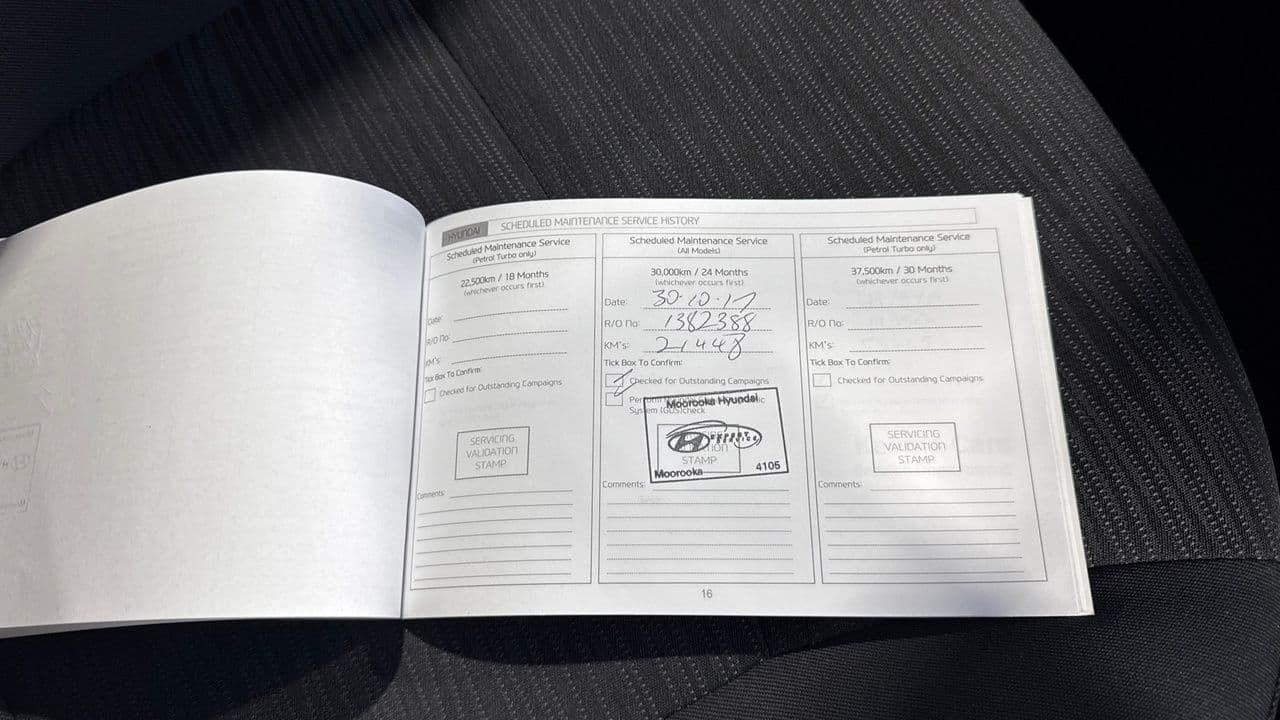 HYUNDAI SCHEDULED MAINTENANCE SERVICE HISTORY
Scheduled Maintenance Service
(Petrol Turbo only)
22,500km / 18 Months
(whichever occurs first)
Date:
R/O No:
KM's:
Tick Box To Confirm:
Checked for Outstanding Campaigns
SERVICING
VALIDATION
STAMP
Comments:
Scheduled Maintenance Service
(All Models)
30,000km / 24 Months
(whichever occurs first)
Date: 30-10-17
R/O No: 1382388
KM's: 21448
Tick Box To Confirm:
Checked for Outstanding Campaigns
System (GDS) check
Moorooka Hyundai
STAMP
Moorooka 4105
Comments:
Scheduled Maintenance Service
(Petrol Turbo only)
37,500km / 30 Months
(whichever occurs first)
Date:
R/O No:
KM's:
Tick Box To Confirm:
Checked for Outstanding Campaigns
SERVICING
VALIDATION
STAMP
Comments:
16